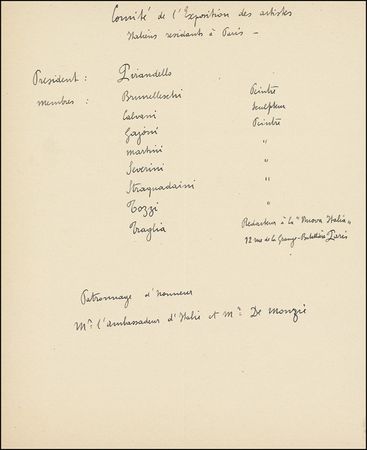 Comité de l'Exposition des artistes
Italiens residants à Paris —
President : Pirandello
membres : Brunelleschi Peintre
Calvani Sculpteur
Gazóni Peintre
Martini "
Severini "
Straquadaini "
Tozzi "
Traglia Redacteur à la "Nuova Italia"
12 rue de la Grange-Batelière Paris
Patronnage d'Honneur
Mr. l'Ambassadeur d'Italie et Mr. De Monzie